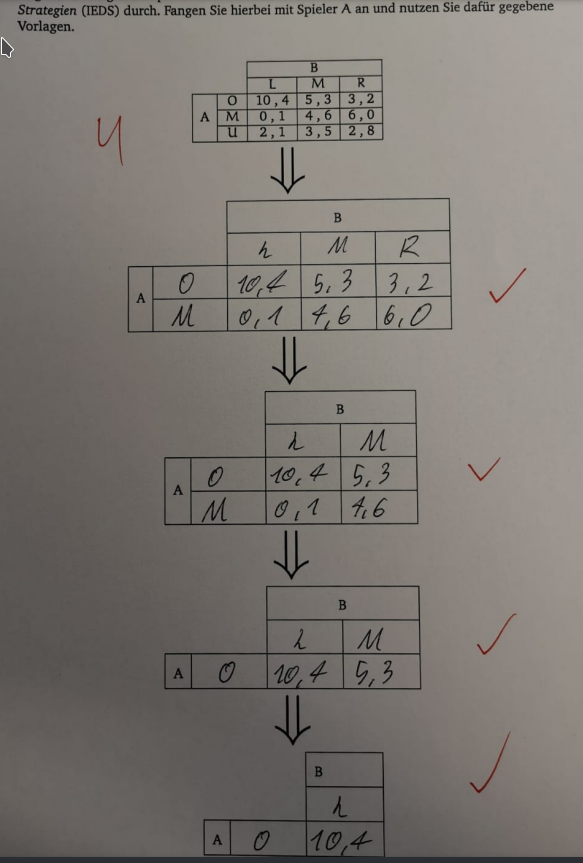 Strategien (IEDS) durch. Fangen Sie hierbei mit Spieler A an und nutzen Sie dafür gegebene
Vorlagen.
B
L M R
O 10,4 5,3 3,2
A M 0,1 4,6 6,0
U 2,1 3,5 2,8
4
B
L M R
O 10,4 5,3 3,2
A
M 0,1 4,6 6,0
B
L M
O 10,4 5,3
A
M 0,1 4,6
B
L M
A O 10,4 5,3
B
L
A O 10,4